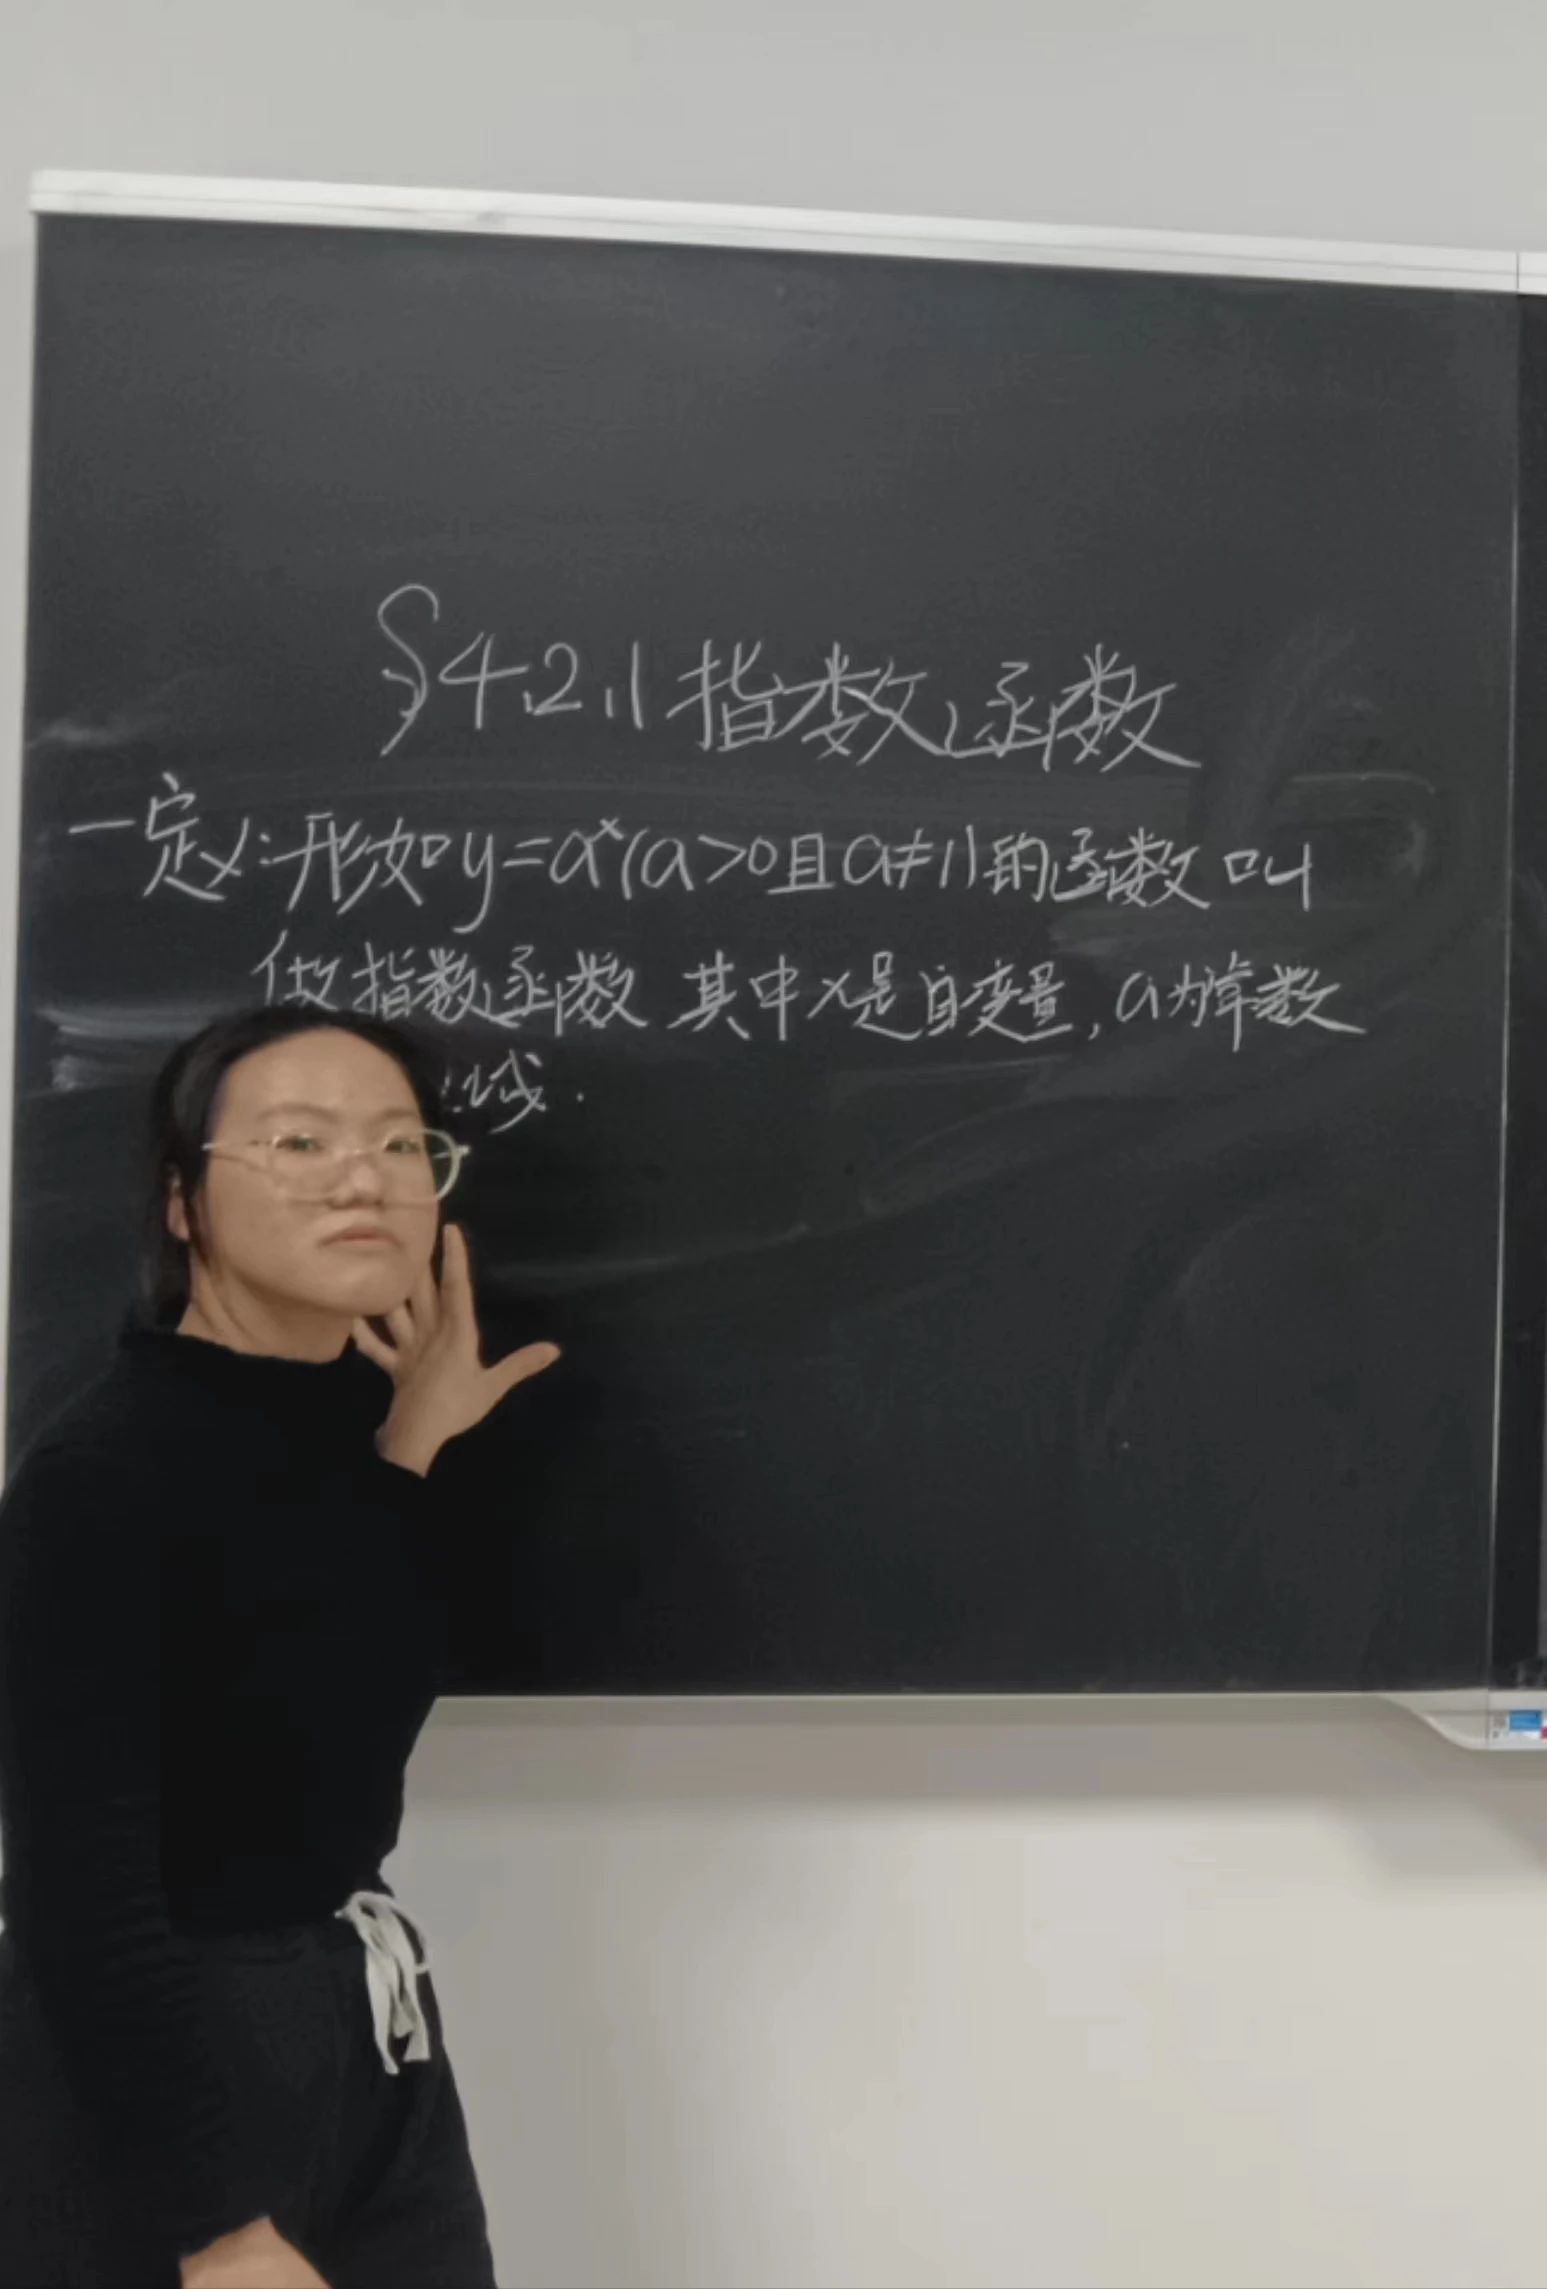 §4.2.1指数函数
一定义:形如y=aˣ(a>0且a≠1)的函数叫
做指数函数 其中x是自变量,a为常数
域.